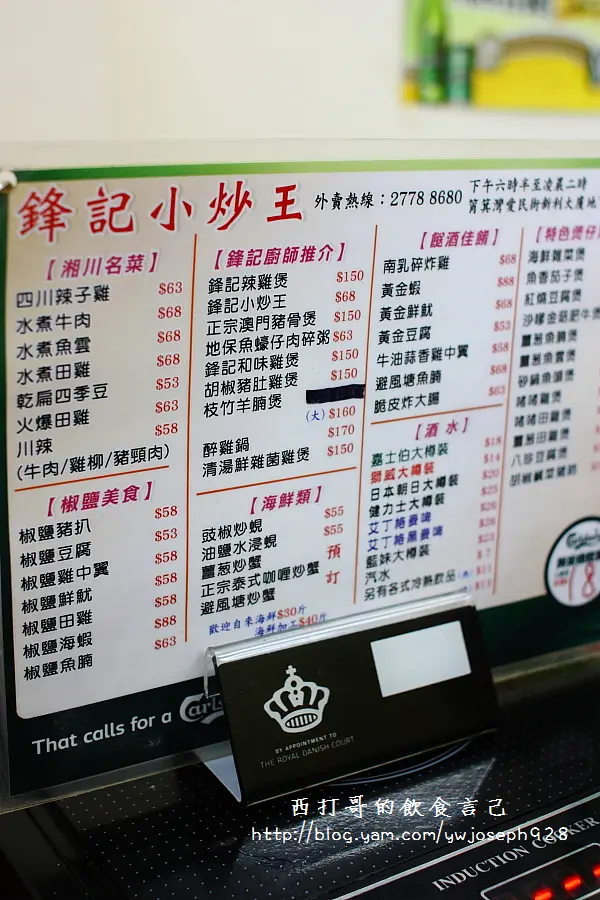 鋒記小炒王
外賣熱線：2778 8680
下午六時半至凌晨二時
筲箕灣愛民街新利大廈地
【湘川名菜】
四川辣子雞 $63
水煮牛肉 $68
水煮魚雲 $68
水煮田雞 $68
乾扁四季豆 $53
火爆田雞 $63
川辣 $58
(牛肉/雞柳/豬頸肉)
【椒鹽美食】
椒鹽豬扒 $58
椒鹽豆腐 $53
椒鹽雞中翼 $58
椒鹽鮮魷 $58
椒鹽田雞 $58
椒鹽海蝦 $88
椒鹽魚腩 $63
【鋒記廚師推介】
鋒記辣雞煲 $150
鋒記小炒王 $68
正宗澳門豬骨煲 $150
地保魚蠔仔肉碎粥 $63
鋒記和味雞煲 $150
胡椒豬肚雞煲 $150
枝竹羊腩煲
(大) $160
醉雞鍋 $170
清湯鮮雜菌雞煲 $150
【海鮮類】
豉椒炒蜆 $55
油鹽水浸蜆 $55
薑葱炒蟹
正宗泰式咖喱炒蟹
避風塘炒蟹
預訂
歡迎自來海鮮$30斤
海鮮加工$40斤
【餸酒佳餚】
南乳碎炸雞 $68
黃金蝦 $88
黃金鮮魷 $68
黃金豆腐 $53
牛油蒜香雞中翼 $58
避風塘魚腩 $68
脆皮炸大腸 $63
【酒水】
嘉士伯大樽裝 $18
獅威大樽裝 $14
日本朝日大樽裝 $20
健力士大樽裝 $25
艾丁格麥啤 $26
艾丁格黑麥啤 $26
藍妹大樽裝 $23
汽水 $7
另有各式冷熱飲品
【特色煲仔
海鮮雜菜煲
魚香茄子煲
紅燒豆腐煲
沙嗲金菇肥牛
薑葱魚腩煲
薑葱魚雲煲
砂鍋魚頭煲
啫啫雞煲
啫啫田雞煲
薑葱田雞煲
八珍豆腐煲
胡椒鹹菜豬
Carlsberg
18
That calls for a Carls
BY APPOINTMENT TO
THE ROYAL DANISH COURT
西打哥的飲食言己
http://blog.yam.com/ywjoseph928
INDUCTION COOKER